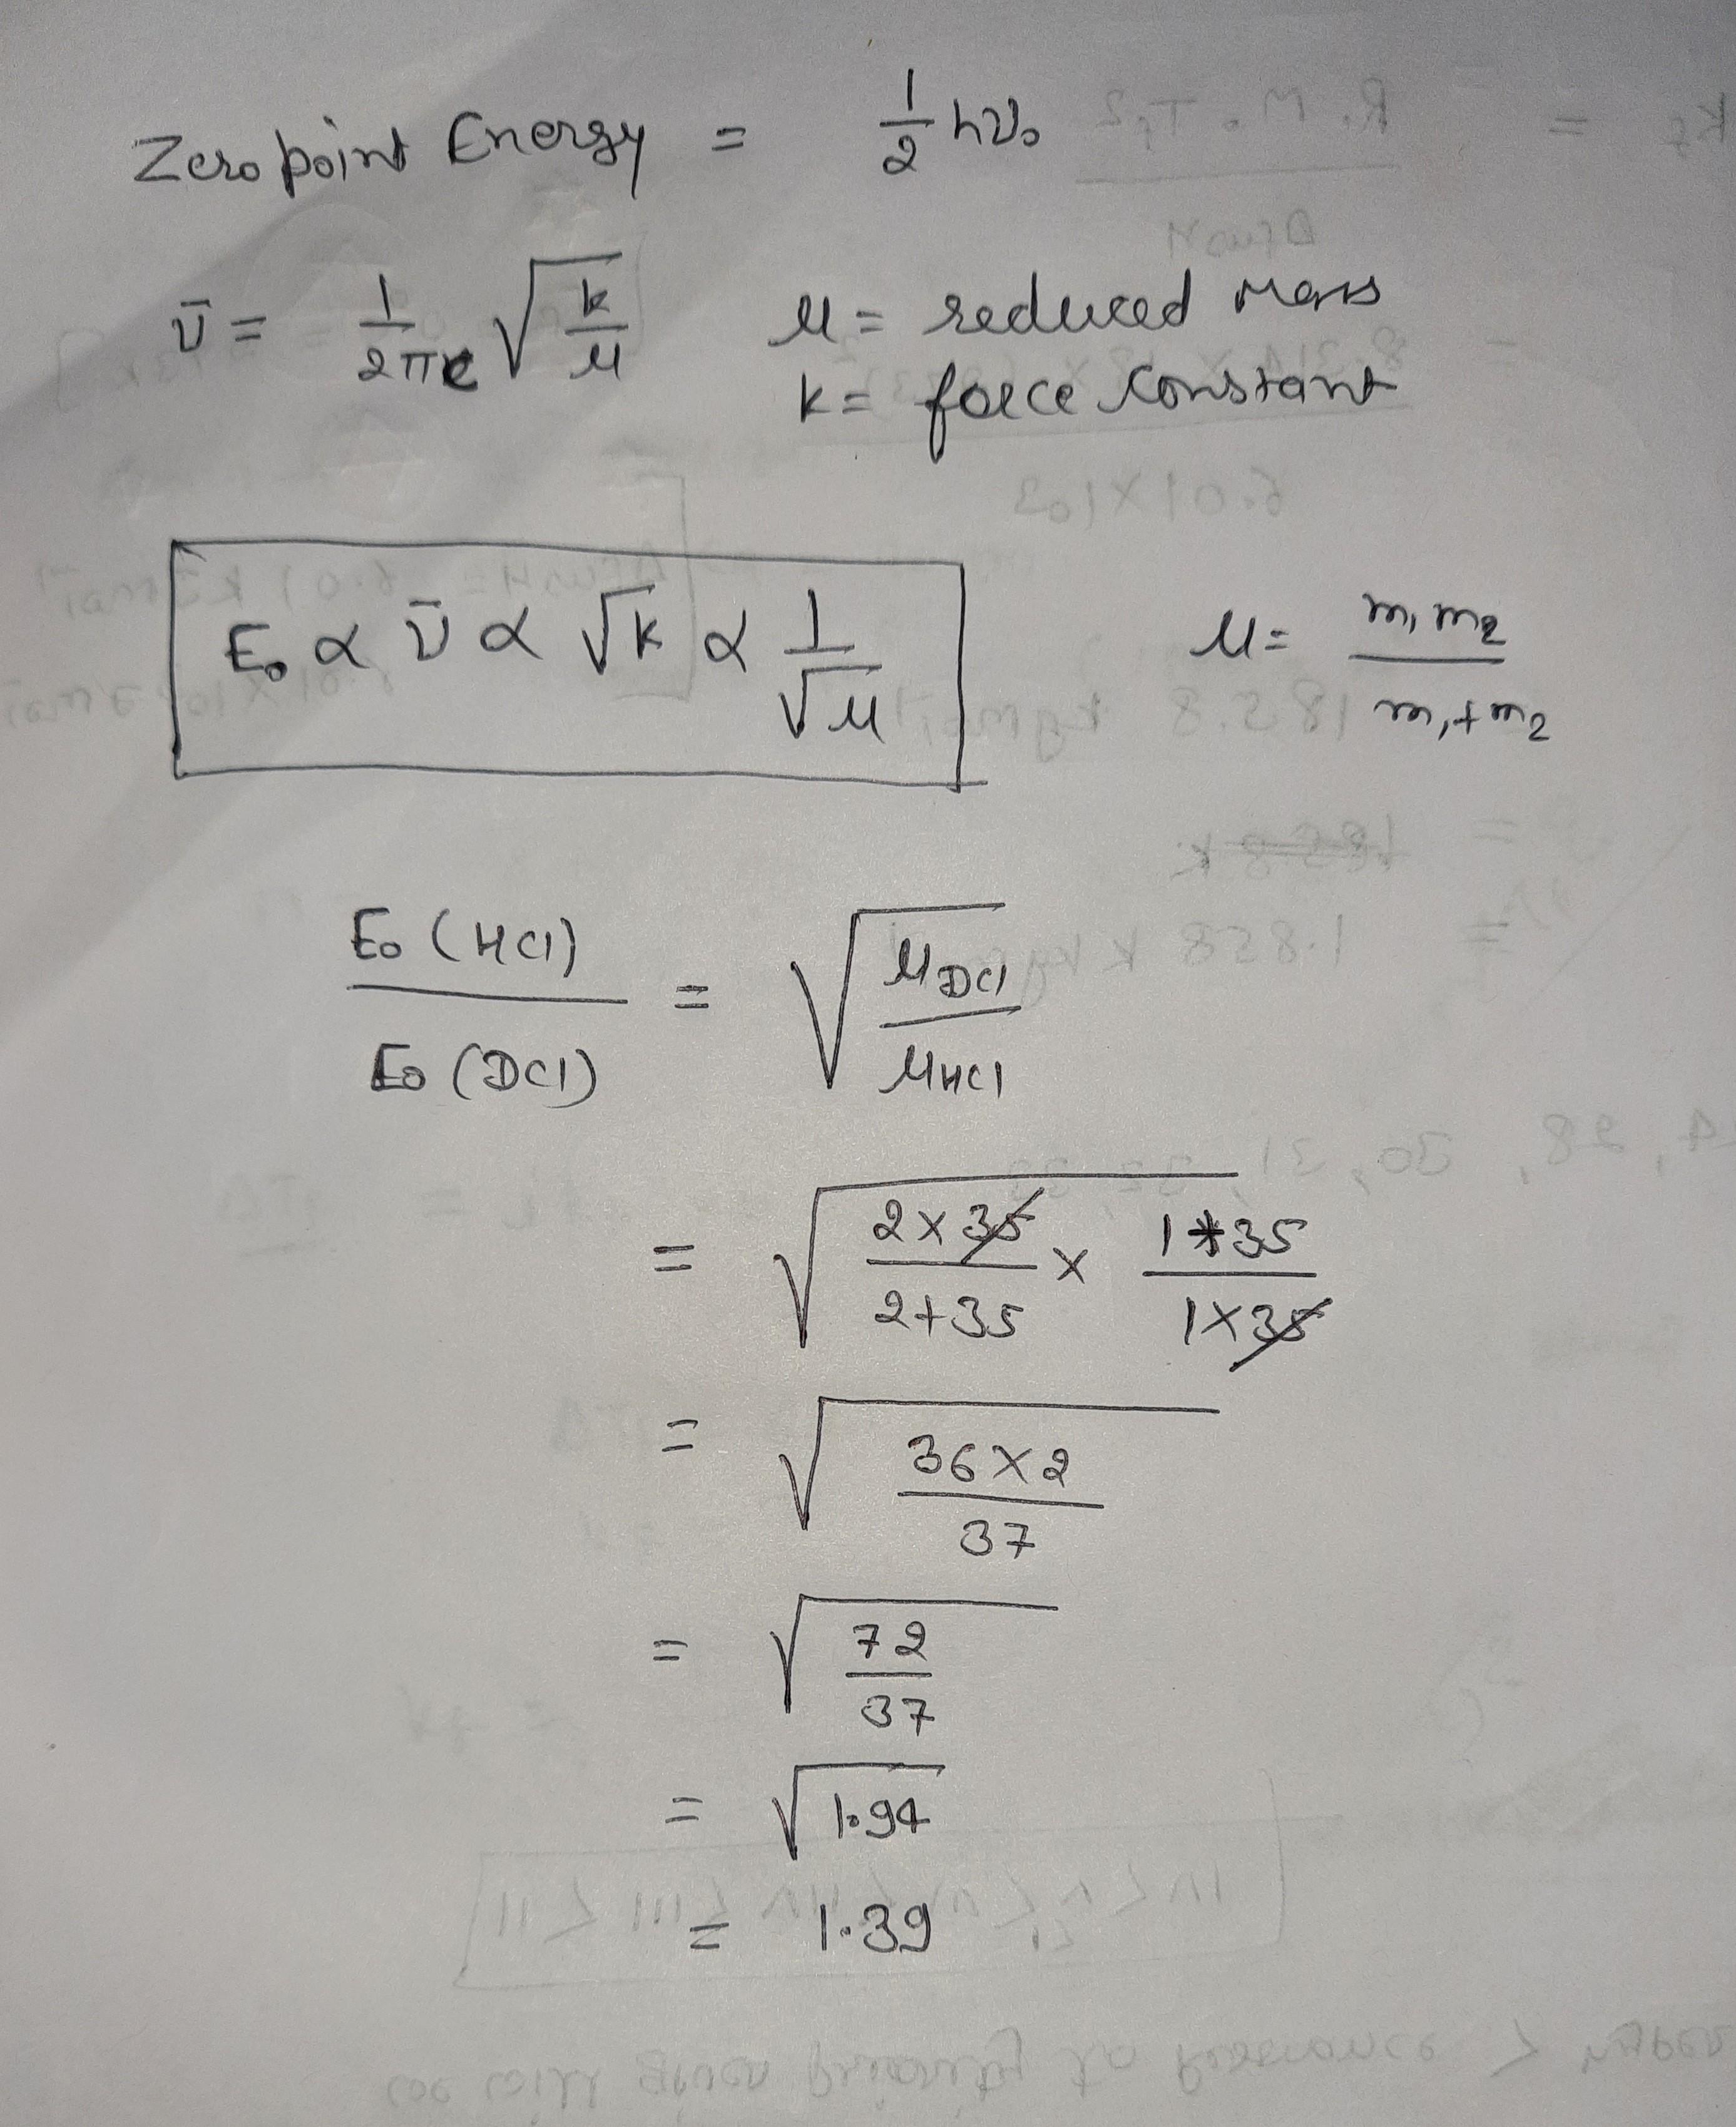 Zero point Energy = 1/2 hν₀
ν̄ = 1/2πc √(k/μ) μ = reduced mass
k = force constant
E₀ ∝ ν̄ ∝ √k ∝ 1/√μ μ = m₁m₂/m₁+m₂
E₀ (HCl)/E₀ (DCl) = √(μDCl/μHCl)
= √(2×35/2+35 × 1+35/1×35)
= √(36×2/37)
= √(72/37)
= √1.94
= 1.39